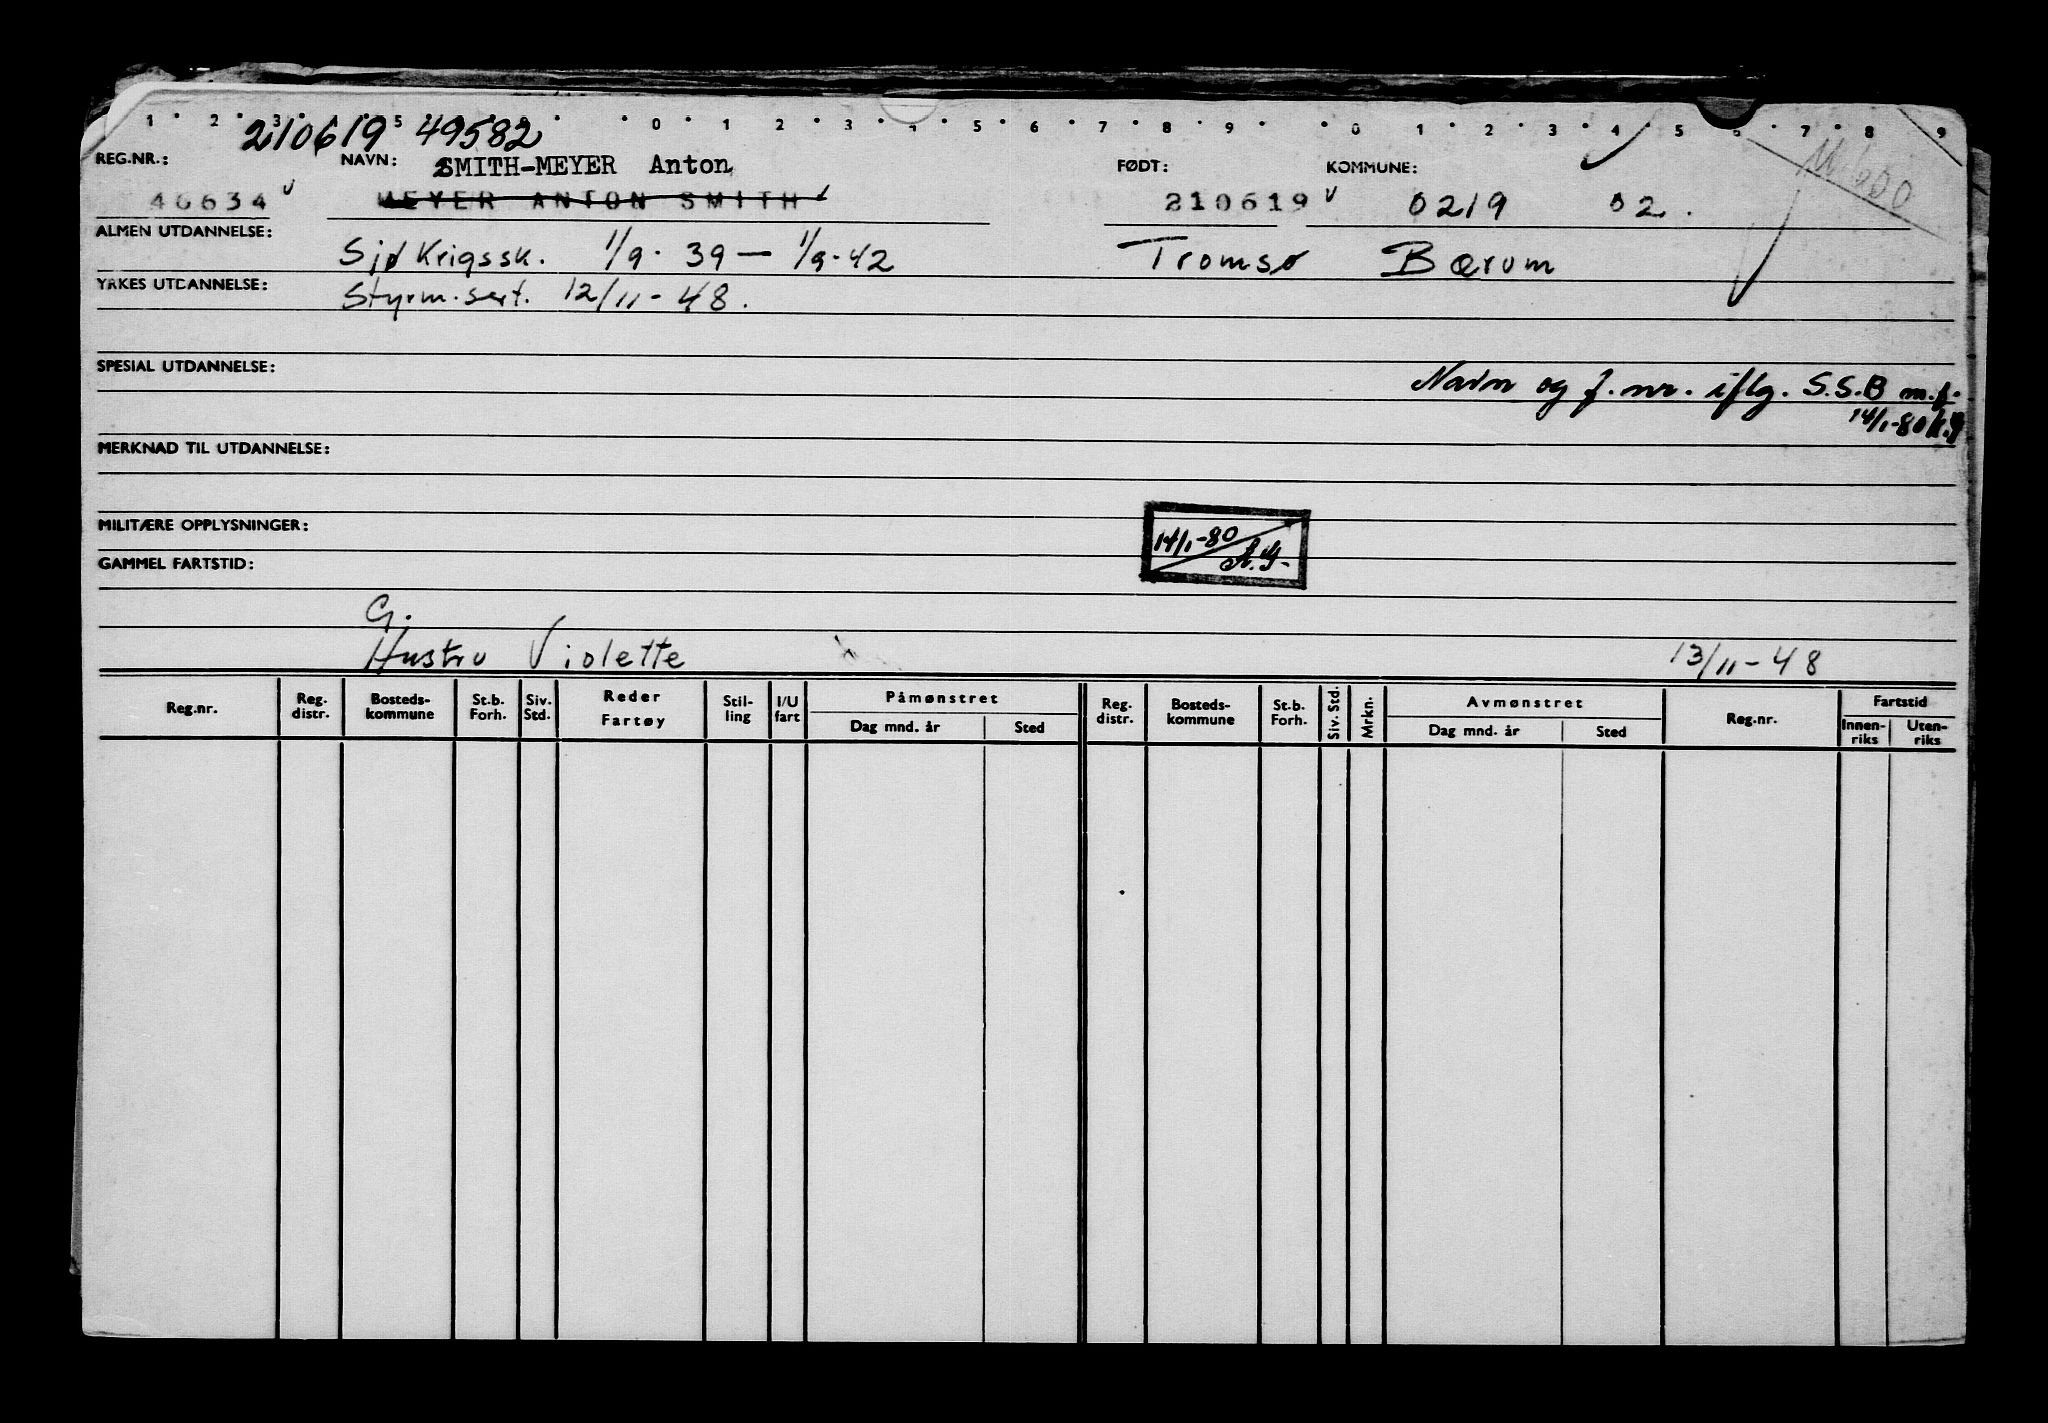 1 2 3 5 0 1 2 3 4 5 6 7 8 9 0 1 2 3 4 5 6 7 8 9
210619 49582
REG.NR.: NAVN: SMITH-MEYER Anton FØDT: KOMMUNE:
46634 MEYER ANTON SMITH 210619 0219 02.
ALMEN UTDANNELSE: Sjø Krigssk. 1/9. 39 — 1/9-42 Tromsø Bærum
YRKES UTDANNELSE: Styrm. sert. 12/11-48.
SPESIAL UTDANNELSE:
Navn og f. nr. iflg. S.S.B m.f.
14/1-80
MERKNAD TIL UTDANNELSE:
MILITÆRE OPPLYSNINGER:
14/1-80
GAMMEL FARTSTID:
G.
Hustru Violette 13/11-48
Reg.nr. Reg. distr. Bosteds-kommune St.b. Forh. Siv. Std. Reder Fartøy Stil-ling I/U fart Påmønstret Dag mnd. år Sted Reg. distr. Bosteds-kommune St.b. Forh. Siv. Std. Mrkn. Avmønstret Dag mnd. år Sted Reg.nr. Fartstid Innen-riks Uten-riks